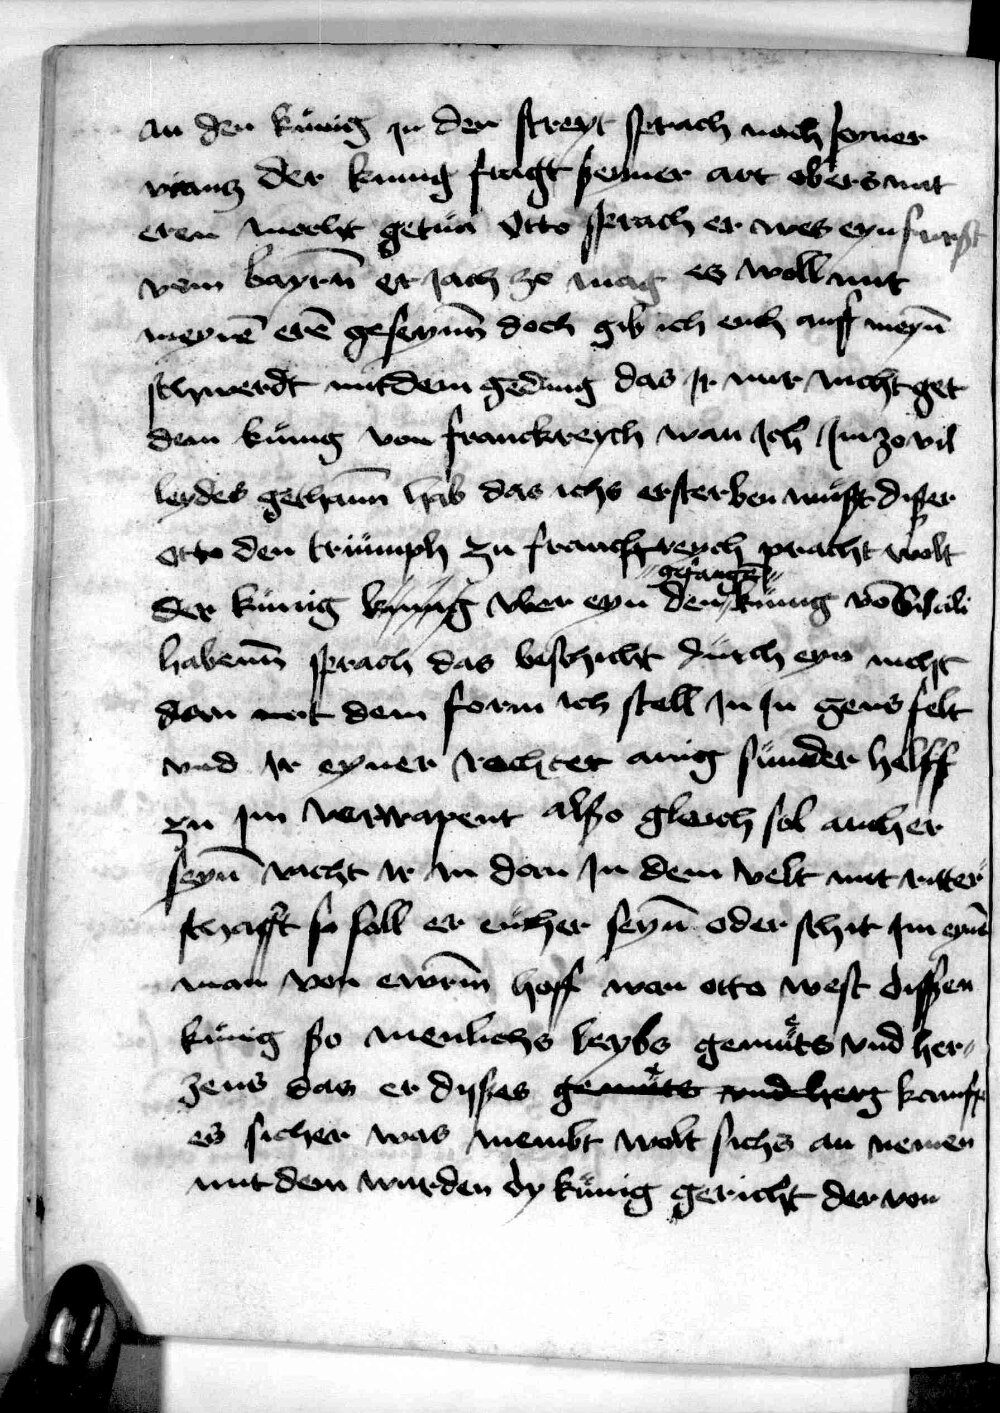 an den künig in den streyt sprach nach seyner
vianz der kunig fragt seiner art ob ers mit
eren mocht getun Otto sprach er wes eyn furst
vom bayrn̄ er jach zo mag es woll mit
meynē erē geseynn̄ doch gib ich euch auff meyn̄
schwerdt mit dem geding das ir mir nicht get
dem künig von franckreych wan ich im zo vil
leydes gethann̄ hab das ichs ersterben müst diser
otto den triümph zu franckreych pracht wolt
gefangē
der künig künig wer eyn den künig vō Sicili
habenn̄ sprach das beschicht dürch eyn nicht
dan mit dem form ich stell in in gens felt
vnd ir eyner rechter ainig sünder helff
zu im verwapent also gleich sol aucher
seyn̄ vicht ir in dan in dem velt mit ritter
schafft so soll er eücher seyn̄ oder schit im eyn̄
man von ewrm̄ hoff wan otto west dissen
künig so menlichs leybs gemüts vnd her
zens das er dises gemüts vnd herz kempff
es sicher was niembt wolt sichs an nemen
mit dem wurden dy künig gericht der von